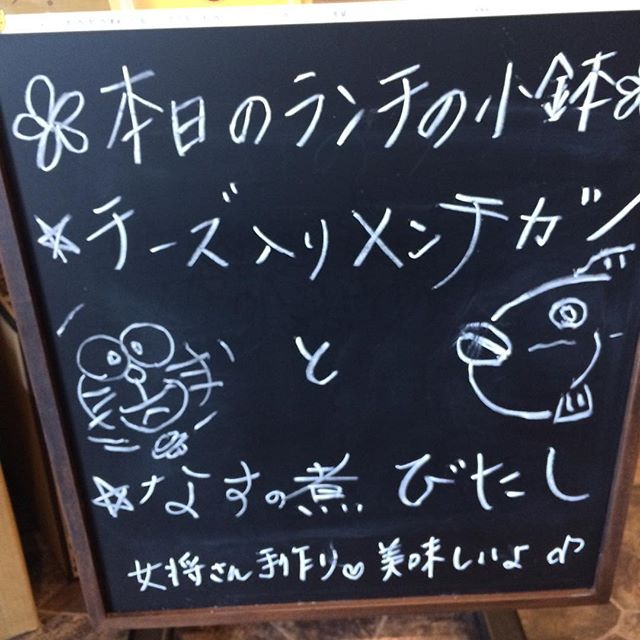 本日のランチの小鉢
★チーズ入りメンチカツ
と
★なすの煮びたし
女将さん手作り♡美味しいよ♪